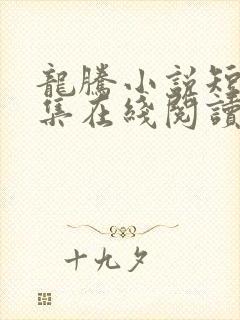 龍騰小說短
集在綫閱讀
十九夕